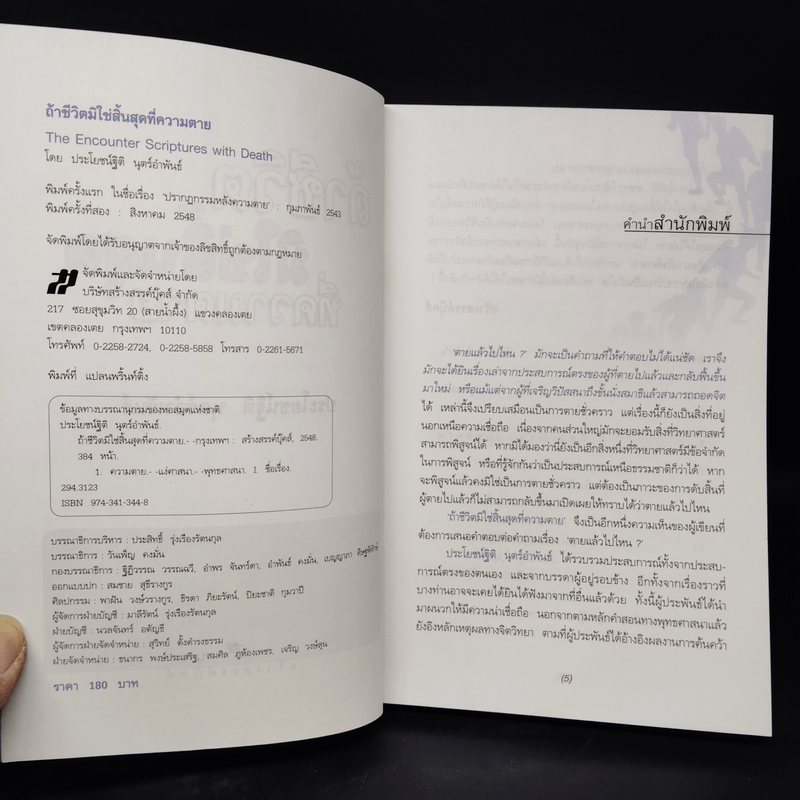 ถ้าชีวิตมิใช่สิ้นสุดที่ความตาย
The Encounter Scriptures with Death
โดย ประโยชน์ฐิติ นุตร์อำพันธ์
พิมพ์ครั้งแรก ในชื่อเรื่อง 'ปรากฏกรรมหลังความตาย' : กุมภาพันธ์ 2543
พิมพ์ครั้งที่สอง : สิงหาคม 2548
จัดพิมพ์โดยได้รับอนุญาตจากเจ้าของลิขสิทธิ์ถูกต้องตามกฎหมาย
จัดพิมพ์และจัดจำหน่ายโดย
บริษัทสร้างสรรค์บุ๊คส์ จำกัด
217 ซอยสุขุมวิท 20 (สายน้ำผึ้ง) แขวงคลองเตย
เขตคลองเตย กรุงเทพฯ 10110
โทรศัพท์ 0-2258-2724, 0-2258-5858 โทรสาร 0-2261-5671
พิมพ์ที่ แปลนพริ้นท์ติ้ง
ข้อมูลทางบรรณานุกรมของหอสมุดแห่งชาติ
ประโยชน์ฐิติ นุตร์อำพันธ์.
ถ้าชีวิตมิใช่สิ้นสุดที่ความตาย.- -กรุงเทพฯ : สร้างสรรค์บุ๊คส์, 2548.
384 หน้า.
1. ความตาย.- -แง่ศาสนา.- -พุทธศาสนา. I. ชื่อเรื่อง.
294.3123
ISBN 974-341-344-8
บรรณาธิการบริหาร : ประสิทธิ์ รุ่งเรืองรัตนกุล
บรรณาธิการ : วันเพ็ญ คงมั่น
กองบรรณาธิการ : ฐิฏิวรรณ วรรณฉวี, อำพร จันทร์ดา, อำพันธ์ คงมั่น, เบญญาภา
ออกแบบปก : สมชาย สุธีรางกูร
ศิลปกรรม : พาฝัน วงษ์วรางกูร, ธิรดา ภิยะรัตน์, ปิยะชาติ กุมวาปี
ผู้จัดการฝ่ายบัญชี : มาลีรัตน์ รุ่งเรืองรัตนกุล
ฝ่ายบัญชี : นวลจันทร์ อตัญี
ผู้จัดการฝ่ายจัดจำหน่าย : สุวิทย์ ตั้งดำรงธรรม
ฝ่ายจัดจำหน่าย : ธนากร พงษ์ประเสริฐ, สมศิล ภูห้องเพชร, เจริญ วงษ์สุน
ราคา 180 บาท
คำนำสำนักพิมพ์
'ตายแล้วไปไหน ?' มักจะเป็นคำถามที่ให้คำตอบไม่ได้แน่ชัด เราจึง
มักจะได้ยินเรื่องเล่าจากประสบการณ์ตรงของผู้ที่ตายไปแล้วและกลับฟื้นขึ้น
มาใหม่ หรือแม้แต่จากผู้ที่เจริญวิปัสสนาถึงขั้นนั่งสมาธิแล้วสามารถถอดจิต
ได้ เหล่านี้จึงเปรียบเสมือนเป็นการตายชั่วคราว แต่เรื่องนี้ก็ยังเป็นสิ่งที่อยู่
นอกเหนือความเชื่อถือ เนื่องจากคนส่วนใหญ่มักจะยอมรับสิ่งที่วิทยาศาสตร์
สามารถพิสูจน์ได้ หากมิได้มองว่านี่ยังเป็นอีกสิ่งหนึ่งที่วิทยาศาสตร์มีข้อจำกัด
ในการพิสูจน์ หรือที่รู้จักกันว่าเป็นประสบการณ์เหนือธรรมชาติก็ว่าได้ หาก
จะพิสูจน์แล้วคงมิใช่เป็นการตายชั่วคราว แต่ต้องเป็นภาวะของการดับสิ้นที่
ผู้ตายไปแล้วก็ไม่สามารถกลับขึ้นมาเปิดเผยให้ทราบได้ว่าตายแล้วไปไหน
'ถ้าชีวิตมิใช่สิ้นสุดที่ความตาย' จึงเป็นอีกหนึ่งความเห็นของผู้เขียนที่
ต้องการเสนอคำตอบต่อคำถามเรื่อง 'ตายแล้วไปไหน ?'
ประโยชน์ฐิติ นุตร์อำพันธ์ ได้รวบรวมประสบการณ์ทั้งจากประสบ-
การณ์ตรงของตนเอง และจากบรรดาผู้อยู่รอบข้าง อีกทั้งจากเรื่องราวที่
บางท่านอาจจะเคยได้ยินได้ฟังมาจากที่อื่นแล้วด้วย ทั้งนี้ผู้ประพันธ์ได้นำ
มาผนวกให้มีความน่าเชื่อถือ นอกจากตามหลักคำสอนทางพุทธศาสนาแล้ว
ยังอิงหลักเหตุผลทางจิตวิทยา ตามที่ผู้ประพันธ์ได้อ้างอิงผลงานการค้นคว้า
(5)